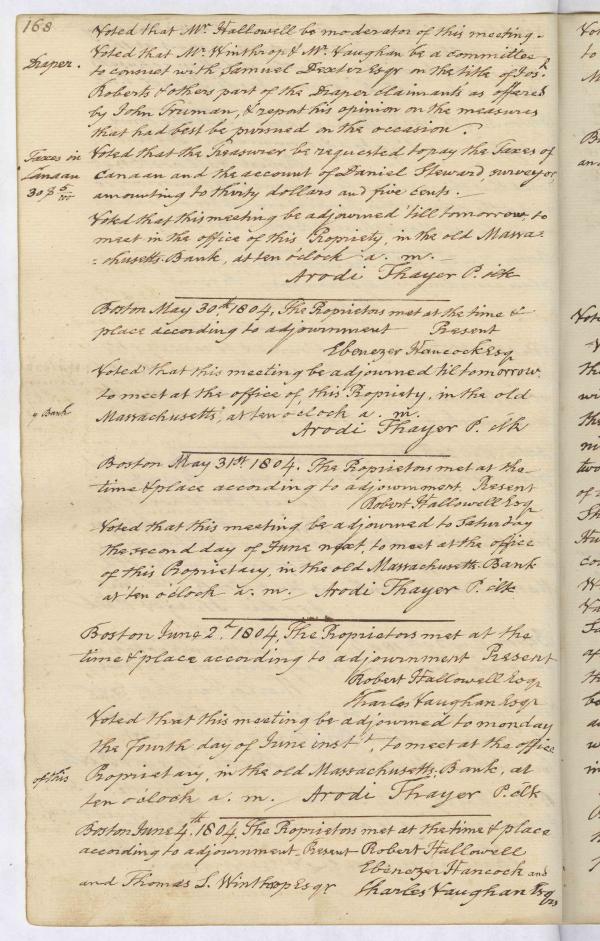 168
Voted that Mr. Hallowell be moderator of this meeting.
Draper.
Voted that Mr. Winthrop & Mr. Vaughan be a committee
to consult with Samuel Dexter Esqr on the title of Josh
Roberts & others part of the Draper claimants as offered
by John Truman, & report his opinion on the measures
that had best be pursued on the occasion.
Taxes in
Canaan
30 $ 5/100
Voted that the Treasurer be requested to pay the Taxes of
Canaan and the account of Daniel Steward, surveyor,
amounting to thirty dollars and five cents.
Voted that this meeting be adjourned 'till tomorrow, to
meet in the office of this Propriety, in the old Massa-
-chusetts Bank, at ten o'clock a. m.
Arodi Thayer P. clk
Boston May 30th 1804, The Proprietors met at the time &
place according to adjournment Present
Ebenezer Hancock Esq
Voted that this meeting be adjourned til tomorrow,
to meet at the office of this Propriety, in the old
" Bank
Massachusetts", at ten o'clock a. m.
Arodi Thayer P. clk
Boston May 31st 1804. The Proprietors met at the
time & place according to adjournment. Present
Robert Hallowell Esq
Voted that this meeting be adjourned to Saturday
the second day of June next, to meet at the office
of this Proprietary, in the old Massachusetts Bank
at ten o'clock a. m. Arodi Thayer P. clk
Boston June 2d 1804, The Proprietors met at the
time & place according to adjournment Present
Robert Hallowell Esqr
Charles Vaughan Esqr
Voted that this meeting be adjourned to monday
the fourth day of June inst, to meet at the office
of this
Proprietary, in the old Massachusetts Bank, at
ten o'clock a. m. Arodi Thayer P. clk
Boston June 4th 1804, The Proprietors met at the time & place
according to adjournment. Present Robert Hallowell
Ebenezer Hancock and
and Thomas L. Winthrop Esqr Charles Vaughan Esqrs